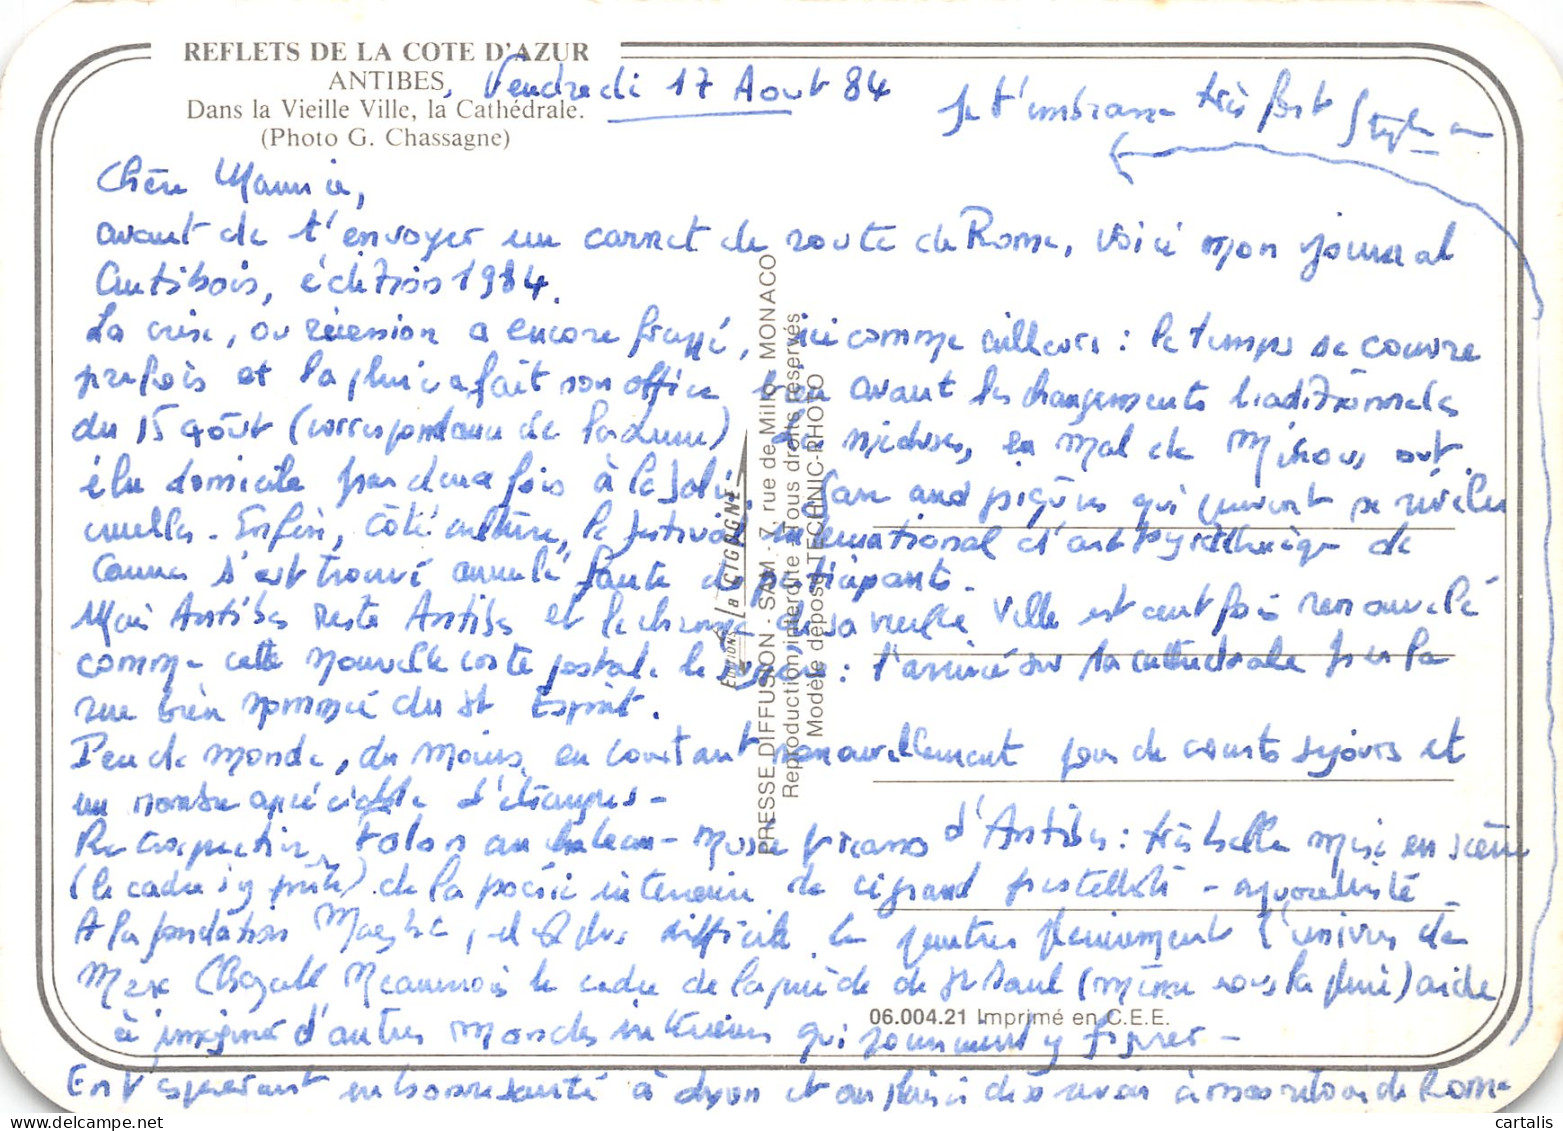 REFLETS DE LA COTE D'AZUR
ANTIBES
Dans la Vieille Ville, la Cathédrale.
(Photo G. Chassagne)
Vendredi 17 Aout 84
Je t'embrasse très fort
Chère Mamie,
avant de t'envoyer un carnet de route de Rome, voici mon journal
Antibois, édition 1984.
La crise, ou récession a encore frappé, ici comme ailleurs : le temps se couvre
parfois et la pluie a fait son office bien avant les changements traditionnels
du 15 août (correspondance de la Lune) Les méduses, en mal de Mikous, ont
élu domicile par deux fois à la Salis. Gare aux piqûres qui peuvent se révéler
cruelles. Enfin, côté culture, le festival international d'art pyrotechnique de
Cannes s'est trouvé annulé faute de participants.
Mais Antibes reste Antibes et le charme de sa vieille ville est cent fois renouvelé
comme cette nouvelle carte postale le : l'arrivée sur la cathédrale par la
rue bien nommée du St Esprit.
Peu de monde, du moins en constant renouvellement pour de courts séjours et
un nombre appréciable d'étrangers -
Retrospective Folon au chateau - Musée Picasso d'Antibes : très belle mise en scène
(le cadre s'y prête) de la poésie intérieure de ce grand pastelliste - aquarelliste
A la fondation Maeght, il est plus difficile de pénétrer pleinement l'univers de
Marc Chagall Néanmoins le cadre de la pinède de St Paul (même sous la pluie) aide
à imaginer d'autres mondes intérieurs qui pourraient y figurer -
En t'espérant en bonne santé à Lyon et au plaisir de te revoir à mon retour de Rome
Editions La CIGOGNE
PRESSE DIFFUSION - SAM - 7, rue de Millo - MONACO
Reproduction interdite - Tous droits réservés
Modèle déposé TECHNIC-PHOTO
06.004.21 Imprimé en C.E.E.
cartalis